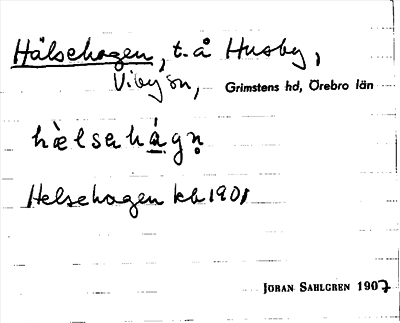 Hälsehagen, t. å Husby,
Viby sn, Grimstens hd, Örebro län
hæ̀lsahá̱gn̥
Helsehagen kb 1901
JÖRAN SAHLGREN 1907